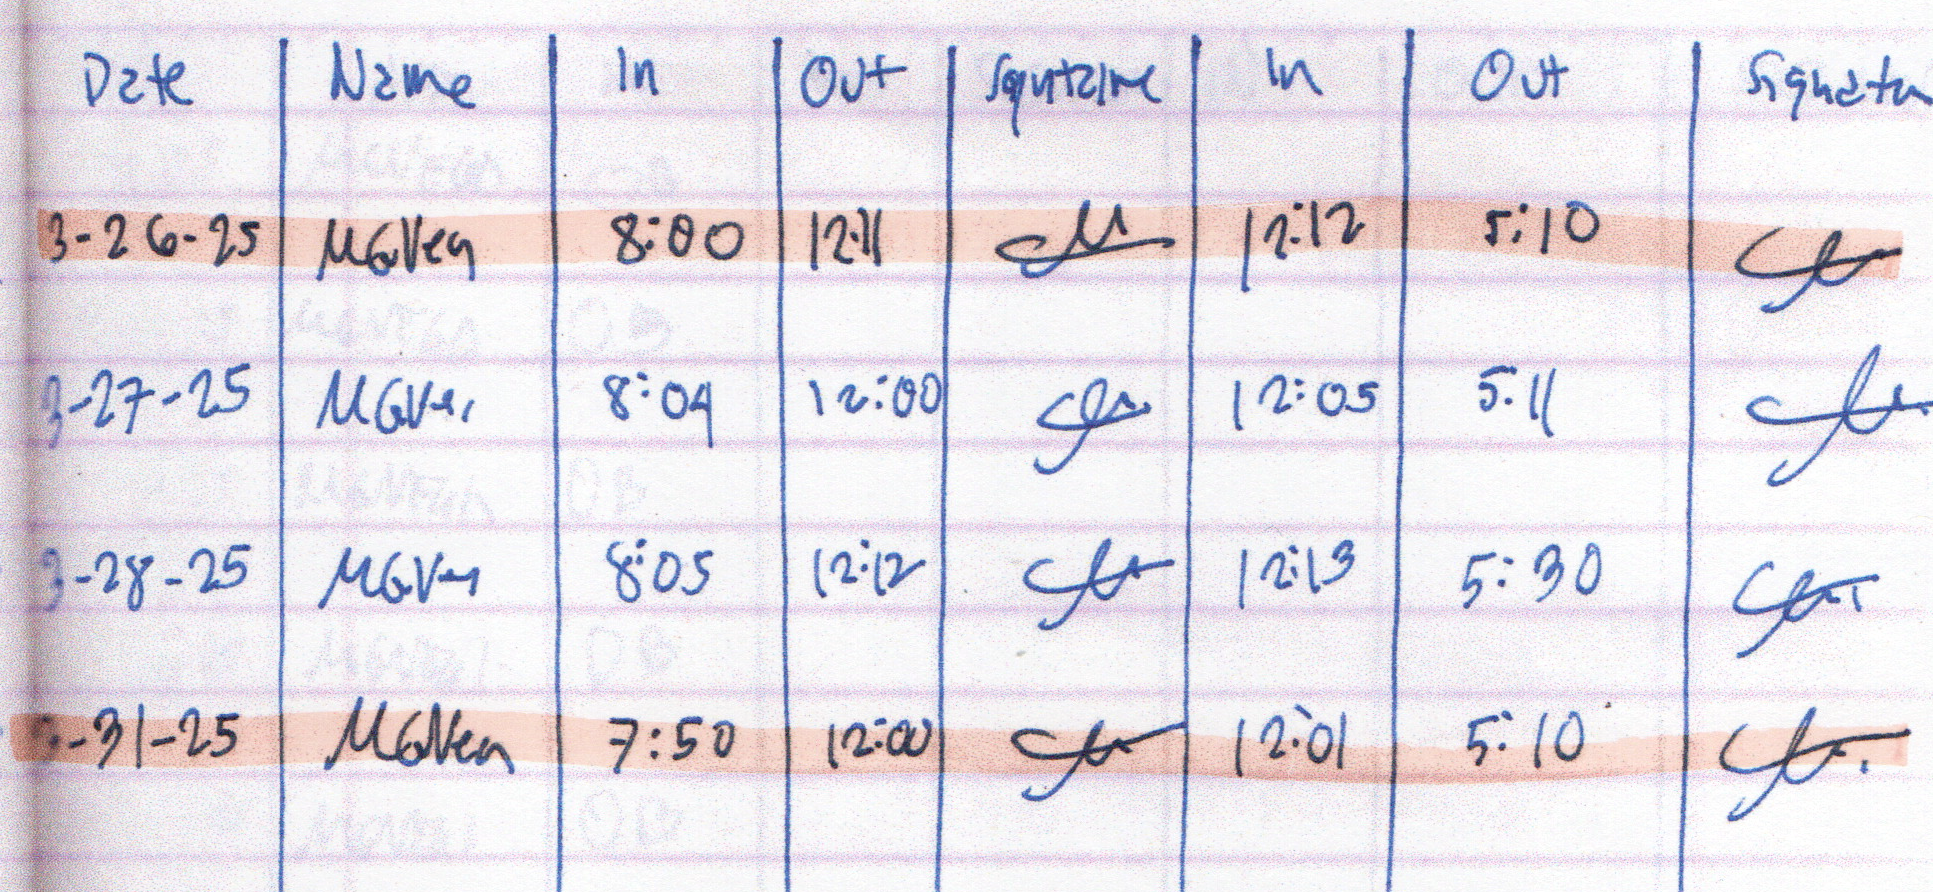 Date Name In Out Signature In Out Signatu
3-26-25 MGVen 8:00 12:11 12:12 5:10
3-27-25 8:04 12:00 12:05 5:11
3-28-25 8:05 12:12 12:13 5:30
-31-25 MGVen 7:50 12:00 12:01 5:10